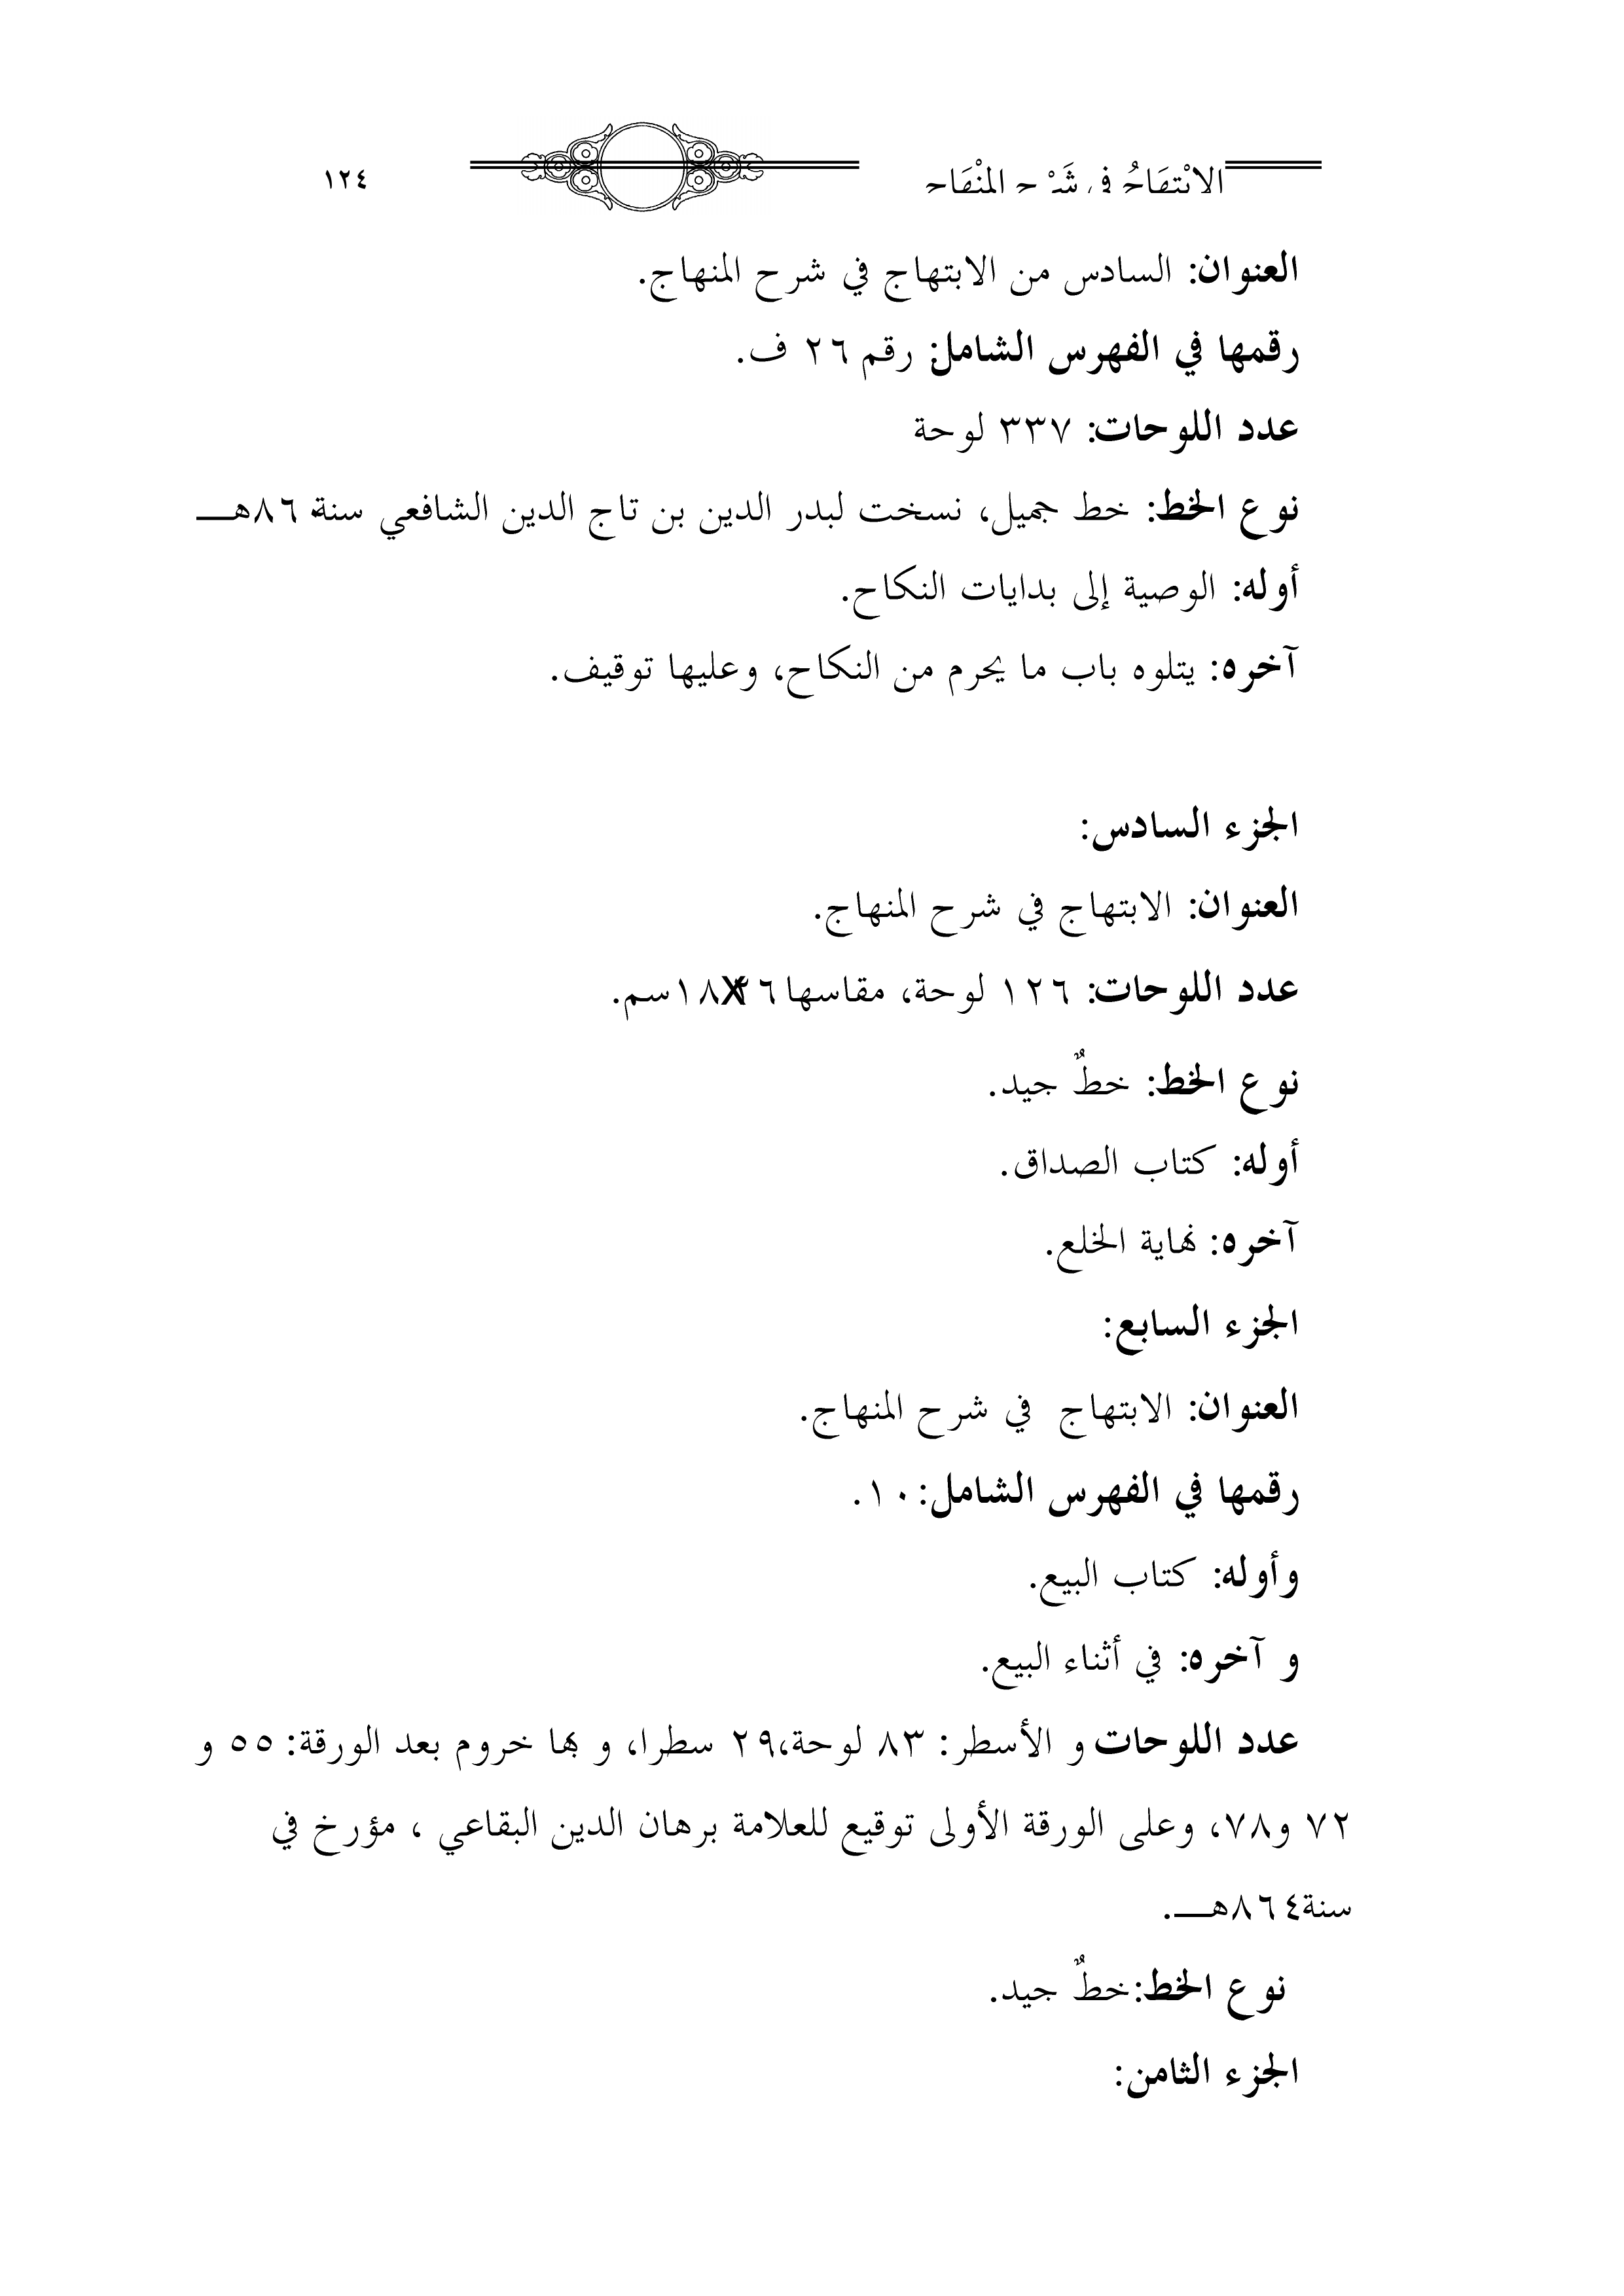 الابْتِهَاجُ في شَرْحِ المِنْهَاجِ ١٢٤
العنوان: السادس من الابتهاج في شرح المنهاج.
رقمها في الفهرس الشامل: رقم ٢٦ ف.
عدد اللوحات: ٣٣٧ لوحة
نوع الخط: خط جميل، نسخت لبدر الدين بن تاج الدين الشافعي سنة ٨٦هـــ
أوله: الوصية إلى بدايات النكاح.
آخره: يتلوه باب ما يحرم من النكاح، وعليها توقيف.
الجزء السادس:
العنوان: الابتهاج في شرح المنهاج.
عدد اللوحات: ١٢٦ لوحة، مقاسها ٢٦X١٨سم.
نوع الخط: خطٌ جيد.
أوله: كتاب الصداق.
آخره: نهاية الخلع.
الجزء السابع:
العنوان: الابتهاج في شرح المنهاج.
رقمها في الفهرس الشامل: ١٠.
وأوله: كتاب البيع.
و آخره: في أثناء البيع.
عدد اللوحات و الأسطر: ٨٣ لوحة،٢٩ سطرا، و بها خروم بعد الورقة: ٥٥ و
٧٢ و٧٨، وعلى الورقة الأولى توقيع للعلامة برهان الدين البقاعي ، مؤرخ في
سنة٨٦٤هـــ.
نوع الخط:خطٌ جيد.
الجزء الثامن: